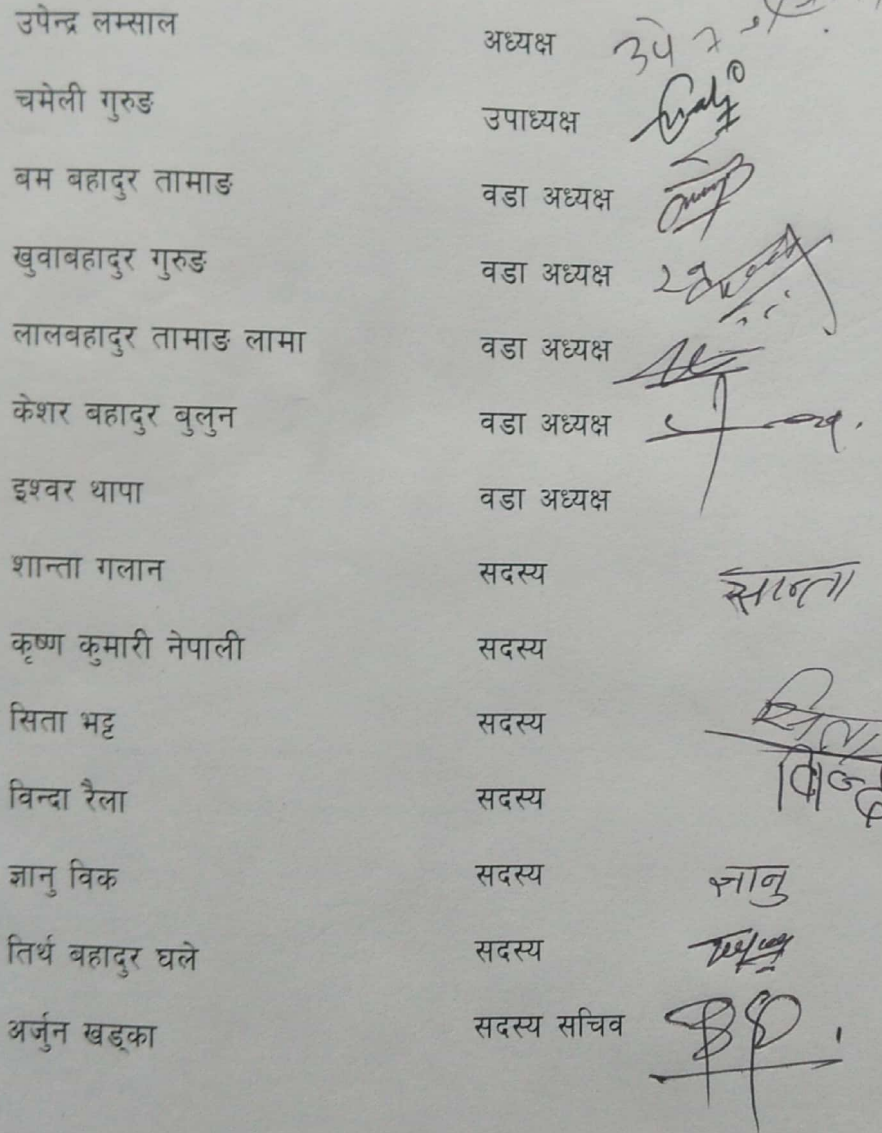 उपेन्द्र लम्साल अध्यक्ष
चमेली गुरुङ उपाध्यक्ष
बम बहादुर तामाङ वडा अध्यक्ष
खुवाबहादुर गुरुङ वडा अध्यक्ष
लालबहादुर तामाङ लामा वडा अध्यक्ष
केशर बहादुर बुलुन वडा अध्यक्ष
इश्वर थापा वडा अध्यक्ष
शान्ता गलान सदस्य सान्ता
कृष्ण कुमारी नेपाली सदस्य
सिता भट्ट सदस्य सिता
विन्दा रैला सदस्य
ज्ञानु विक सदस्य ज्ञानु
तिर्थ बहादुर घले सदस्य
अर्जुन खड्का सदस्य सचिव